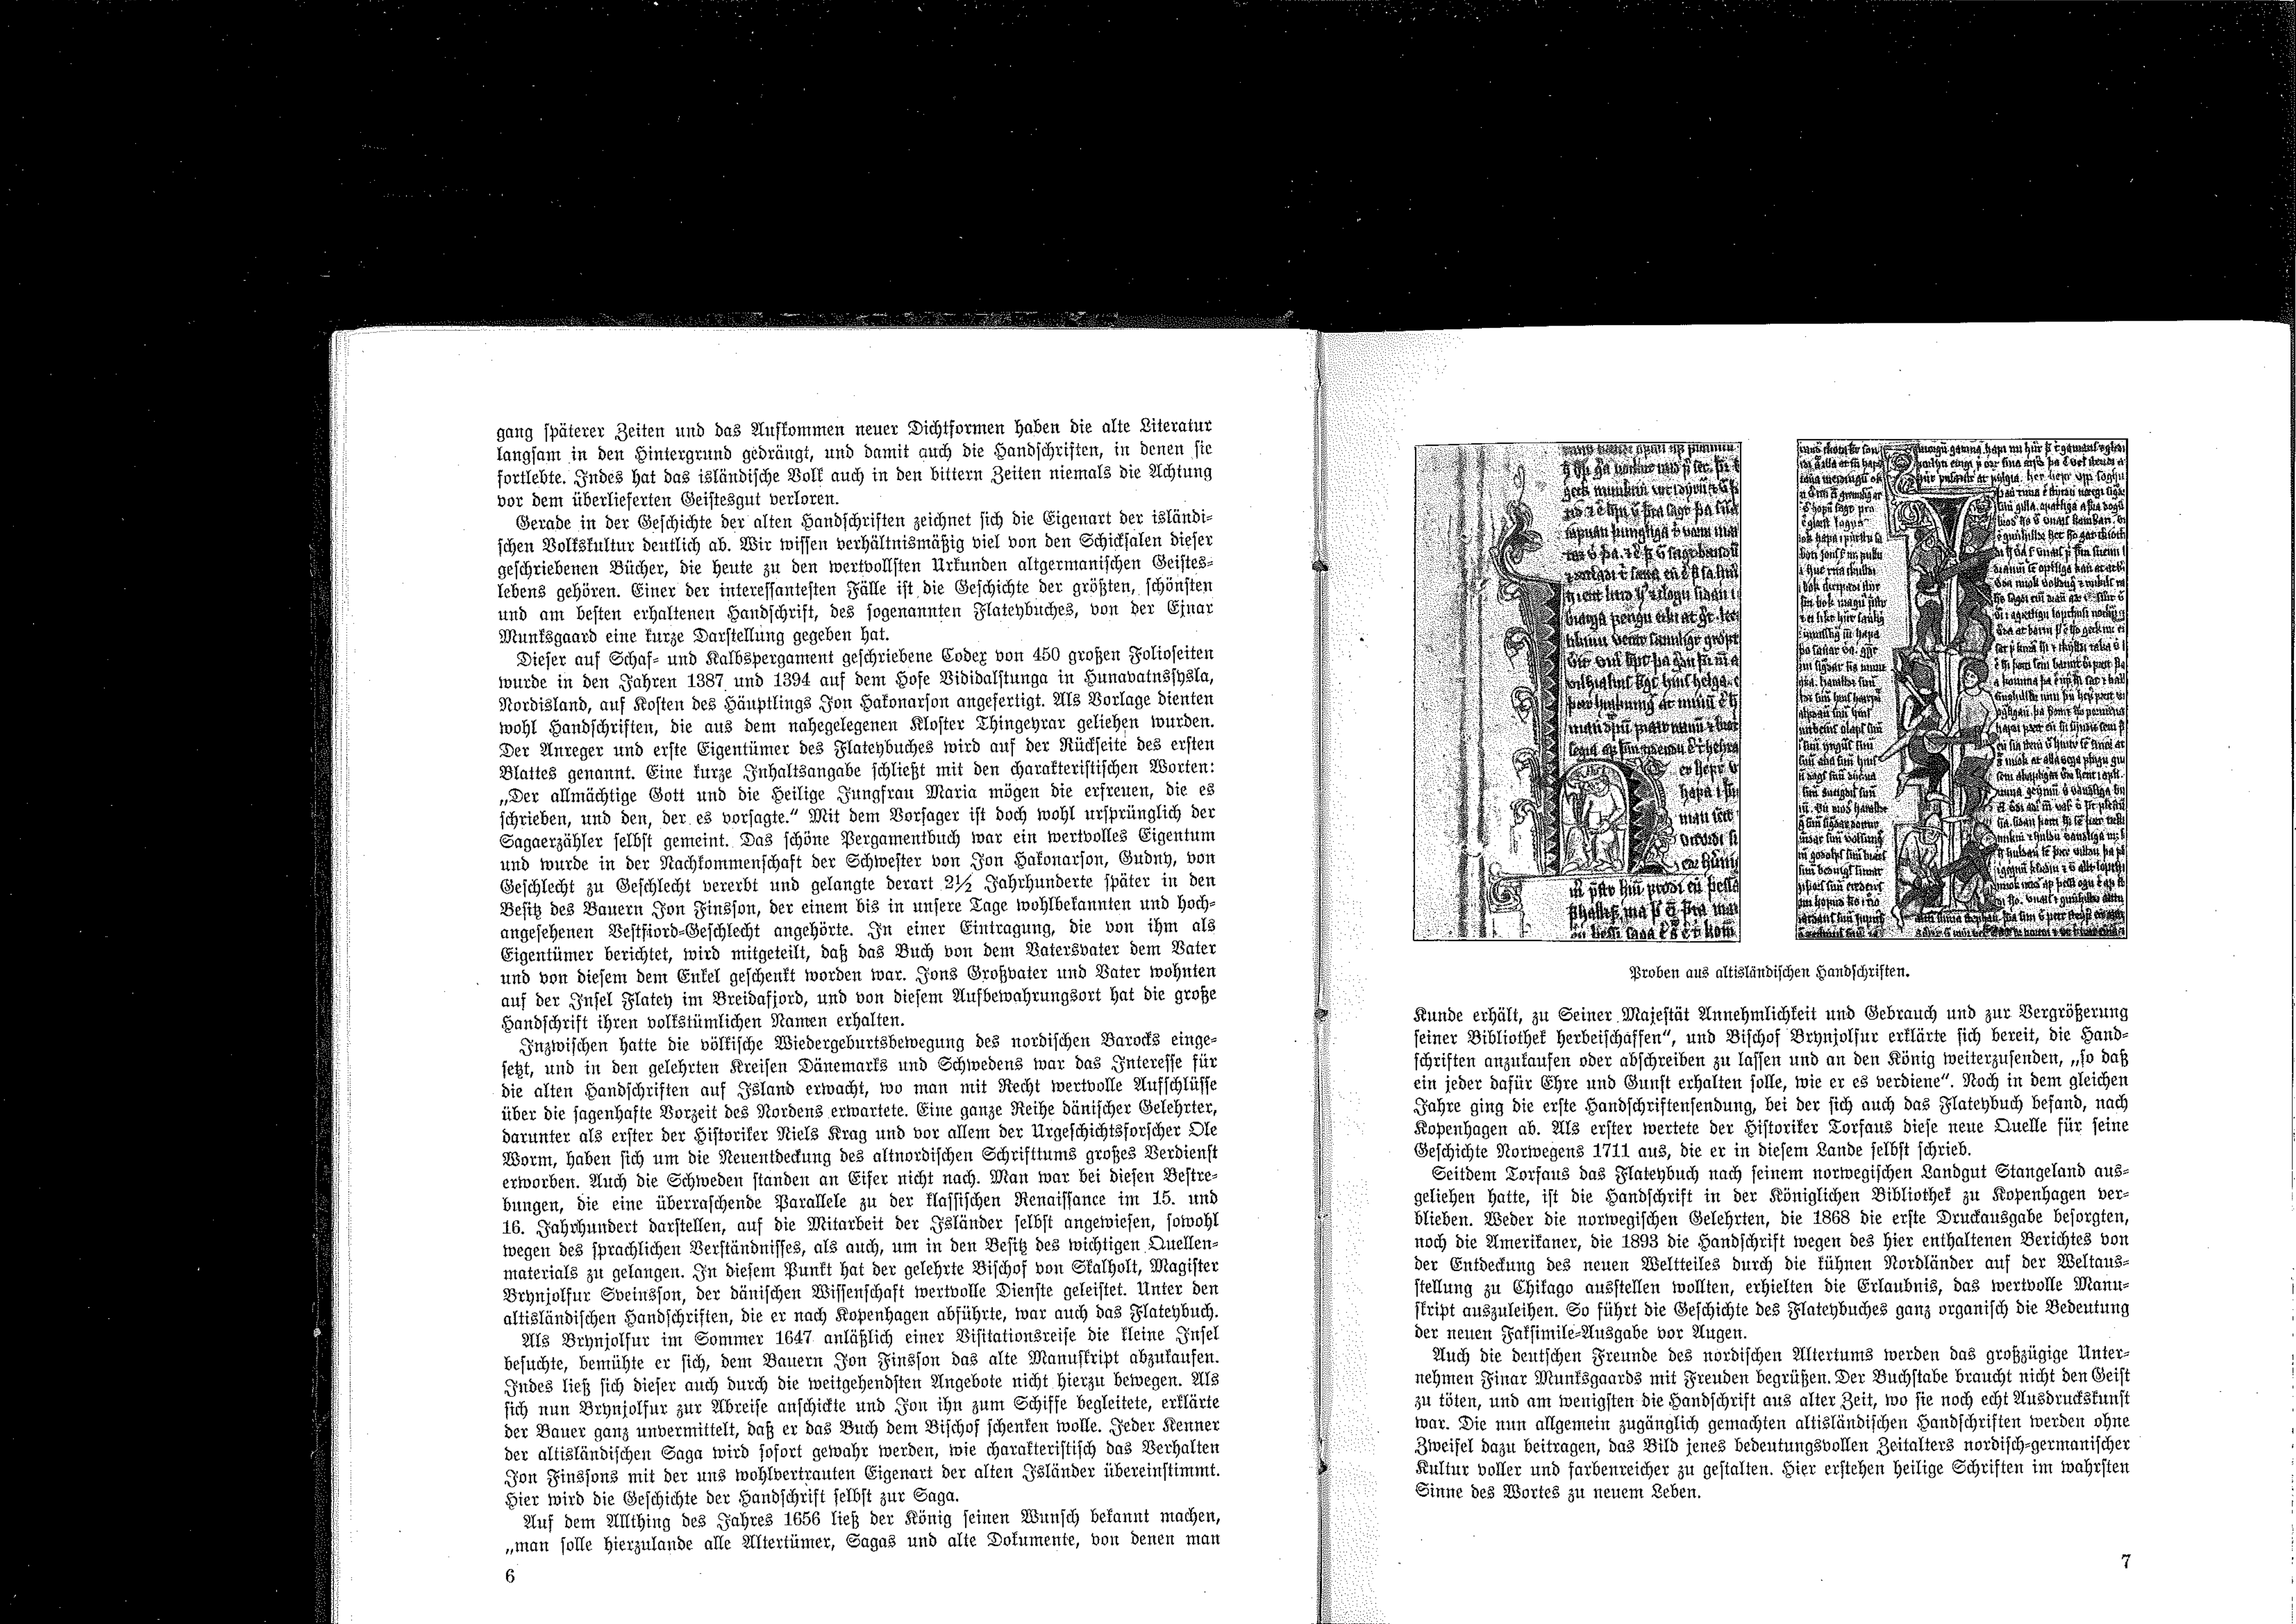 gang späterer Zeiten und das Aufkommen neuer Dichtformen haben die alte Literatur
langsam in den Hintergrund gedrängt, und damit auch die Handschriften, in denen sie
fortlebte. Indes hat das isländische Volk auch in den bittern Zeiten niemals die Achtung
vor dem überlieferten Geistesgut verloren.
Gerade in der Geschichte der alten Handschriften zeichnet sich die Eigenart der isländi-
schen Volkskultur deutlich ab. Wir wissen verhältnismäßig viel von den Schicksalen dieser
geschriebenen Bücher, die heute zu den wertvollsten Urkunden altgermanischen Geistes-
lebens gehören. Einer der interessantesten Fälle ist die Geschichte der größten, schönsten
und am besten erhaltenen Handschrift, des sogenannten Flateybuches, von der Ejnar
Munksgaard eine kurze Darstellung gegeben hat.
Dieser auf Schaf- und Kalbspergament geschriebene Codex von 450 großen Folioseiten
wurde in den Jahren 1387 und 1394 auf dem Hofe Vididalstunga in Hunavatnssysla,
Nordisland, auf Kosten des Häuptlings Jon Hakonarson angefertigt. Als Vorlage dienten
wohl Handschriften, die aus dem nahegelegenen Kloster Thingeyrar geliehen wurden.
Der Anreger und erste Eigentümer des Flateybuches wird auf der Rückseite des ersten
Blattes genannt. Eine kurze Inhaltsangabe schließt mit den charakteristischen Worten:
„Der allmächtige Gott und die Heilige Jungfrau Maria mögen die erfreuen, die es
schrieben, und den, der es vorsagte.“ Mit dem Vorsager ist doch wohl ursprünglich der
Sagaerzähler selbst gemeint. Das schöne Pergamentbuch war ein wertvolles Eigentum
und wurde in der Nachkommenschaft der Schwester von Jon Hakonarson, Gudny, von
Geschlecht zu Geschlecht vererbt und gelangte derart 2½ Jahrhunderte später in den
Besitz des Bauern Jon Finsson, der einem bis in unsere Tage wohlbekannten und hoch-
angesehenen Vestfiord-Geschlecht angehörte. In einer Eintragung, die von ihm als
Eigentümer berichtet, wird mitgeteilt, daß das Buch von dem Vatersvater dem Vater
und von diesem dem Enkel geschenkt worden war. Jons Großvater und Vater wohnten
auf der Insel Flatey im Breidafjord, und von diesem Aufbewahrungsort hat die große
Handschrift ihren volkstümlichen Namen erhalten.
Inzwischen hatte die völkische Wiedergeburtsbewegung des nordischen Barocks einge-
setzt, und in den gelehrten Kreisen Dänemarks und Schwedens war das Interesse für
die alten Handschriften auf Island erwacht, wo man mit Recht wertvolle Aufschlüsse
über die sagenhafte Vorzeit des Nordens erwartete. Eine ganze Reihe dänischer Gelehrter,
darunter als erster der Historiker Niels Krag und vor allem der Urgeschichtsforscher Ole
Worm, haben sich um die Neuentdeckung des altnordischen Schrifttums großes Verdienst
erworben. Auch die Schweden standen an Eifer nicht nach. Man war bei diesen Bestre-
bungen, die eine überraschende Parallele zu der klassischen Renaissance im 15. und
16. Jahrhundert darstellen, auf die Mitarbeit der Isländer selbst angewiesen, sowohl
wegen des sprachlichen Verständnisses, als auch, um in den Besitz des wichtigen Quellen-
materials zu gelangen. In diesem Punkt hat der gelehrte Bischof von Skalholt, Magister
Brynjolfur Sveinsson, der dänischen Wissenschaft wertvolle Dienste geleistet. Unter den
altisländischen Handschriften, die er nach Kopenhagen abführte, war auch das Flateybuch.
Als Brynjolfur im Sommer 1647 anläßlich einer Visitationsreise die kleine Insel
besuchte, bemühte er sich, dem Bauern Jon Finsson das alte Manuskript abzukaufen.
Indes ließ sich dieser auch durch die weitgehendsten Angebote nicht hierzu bewegen. Als
sich nun Brynjolfur zur Abreise anschickte und Jon ihn zum Schiffe begleitete, erklärte
der Bauer ganz unvermittelt, daß er das Buch dem Bischof schenken wolle. Jeder Kenner
der altisländischen Saga wird sofort gewahr werden, wie charakteristisch das Verhalten
Jon Finssons mit der uns wohlvertrauten Eigenart der alten Isländer übereinstimmt.
Hier wird die Geschichte der Handschrift selbst zur Saga.
Auf dem Allthing des Jahres 1656 ließ der König seinen Wunsch bekannt machen,
„man solle hierzulande alle Altertümer, Sagas und alte Dokumente, von denen man
6
Proben aus altisländischen Handschriften.
Kunde erhält, zu Seiner Majestät Annehmlichkeit und Gebrauch und zur Vergrößerung
seiner Bibliothek herbeischaffen“, und Bischof Brynjolfur erklärte sich bereit, die Hand-
schriften anzukaufen oder abschreiben zu lassen und an den König weiterzusenden, „so daß
ein jeder dafür Ehre und Gunst erhalten solle, wie er es verdiene“. Noch in dem gleichen
Jahre ging die erste Handschriftensendung, bei der sich auch das Flateybuch befand, nach
Kopenhagen ab. Als erster wertete der Historiker Torfaus diese neue Quelle für seine
Geschichte Norwegens 1711 aus, die er in diesem Lande selbst schrieb.
Seitdem Torfaus das Flateybuch nach seinem norwegischen Landgut Stangeland aus-
geliehen hatte, ist die Handschrift in der Königlichen Bibliothek zu Kopenhagen ver-
blieben. Weder die norwegischen Gelehrten, die 1868 die erste Druckausgabe besorgten,
noch die Amerikaner, die 1893 die Handschrift wegen des hier enthaltenen Berichtes von
der Entdeckung des neuen Weltteiles durch die kühnen Nordländer auf der Weltaus-
stellung zu Chikago ausstellen wollten, erhielten die Erlaubnis, das wertvolle Manu-
skript auszuleihen. So führt die Geschichte des Flateybuches ganz organisch die Bedeutung
der neuen Faksimile-Ausgabe vor Augen.
Auch die deutschen Freunde des nordischen Altertums werden das großzügige Unter-
nehmen Finar Munksgaards mit Freuden begrüßen. Der Buchstabe braucht nicht den Geist
zu töten, und am wenigsten die Handschrift aus alter Zeit, wo sie noch echt Ausdruckskunst
war. Die nun allgemein zugänglich gemachten altisländischen Handschriften werden ohne
Zweifel dazu beitragen, das Bild jenes bedeutungsvollen Zeitalters nordisch-germanischer
Kultur voller und farbenreicher zu gestalten. Hier erstehen heilige Schriften im wahrsten
Sinne des Wortes zu neuem Leben.
7